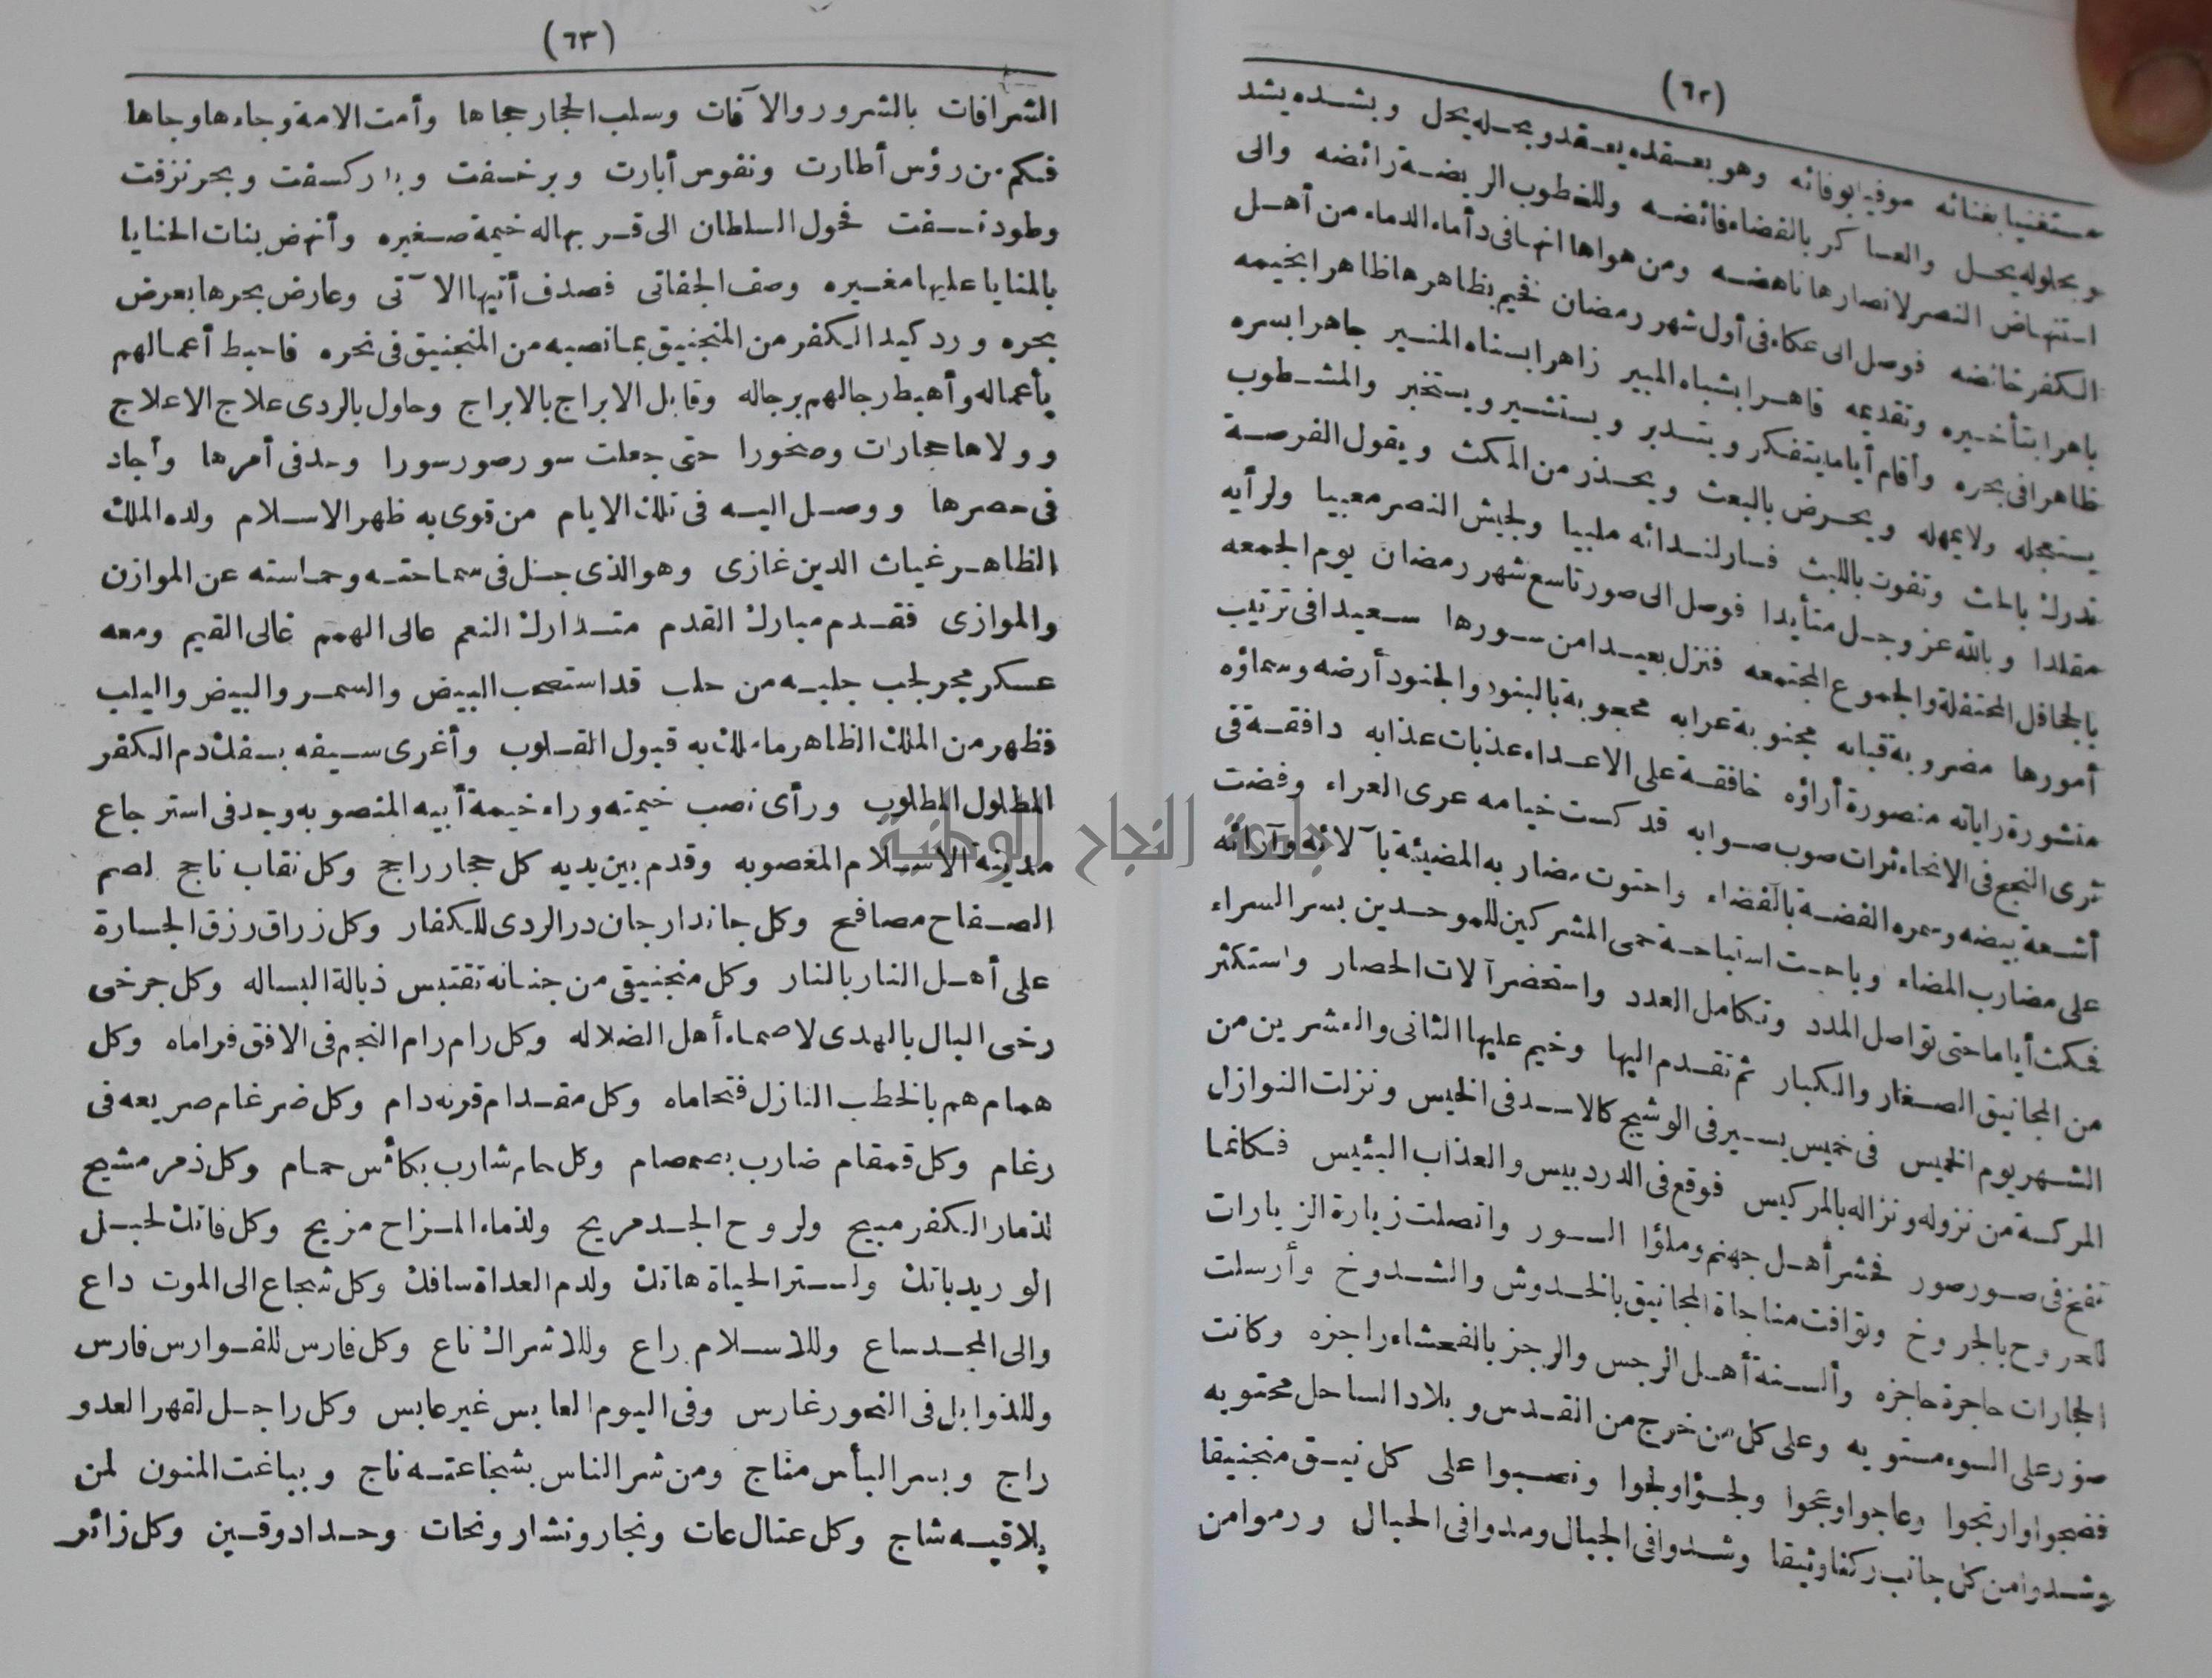 (٦٢)
مستغنيا بغنائه موفيا بوفائه وهو بعقده يعقد وبحله يحل وبشده يشد
وبحلوله يحل والعساكر بالفضاء فائضه وللخطوب الريضة رائضه والى
استنهاض النصر لانصارها ناهضه ومن هواها انها فى دأماء الدماء من أهل
الكفر خائضه فوصل الى عكاء فى أول شهر رمضان فخيم بظاهرها ظاهرا بخيمه
باهرا بتأخيره وتقديمه قاهرا بشباه المبير زاهرا بسناه المنير جاهرا بسره
ظاهرا فى بحره وأقام أياما يتفكر ويتدبر ويستشير ويستخبر والمشطوب
يستعجله ولا يمهله ويحرض بالبعث ويحذر من المكث ويقول الفرصة
تدرك بالحث وتفوت باللبث فسار لندائه ملبيا ولجيش النصر معبيا ولرأيه
مقلدا وبالله عز وجل متأيدا فوصل الى صور تاسع شهر رمضان يوم الجمعه
بالجحافل المحتفلة والجموع المجتمعه فنزل بعيدا من سورها سعيدا فى ترتيب
أمورها مضروبة قبابه مجنوبة عرابه محجوبة بالبنود والجنود أرضه وسماؤه
منشورة راياته منصورة أراؤه خافقة على الاعداء عذبات عذابه دافقة فى
ثرى النجع فى الانحاء ثرات صوب صوابه قد كست خيامه عرى العراء وفضت
أشعة بيضه وسمره الفضة بالفضاء واحتوت مضاربه المضيئة بآلائه وآرائه
على مضارب المضاء وباحت استباحة حمى المشركين للموحدين بسر السراء
فمكث أياما حتى تواصل المدد وتكامل العدد واستحضر آلات الحصار واستكثر
من المجانيق الصغار والكبار ثم تقدم اليها وخيم عليها الثانى والعشرين من
الشهر يوم الخميس فى خميس يسير فى الوشيج كالاسد فى الخيس ونزلت النوازل
المركسة من نزوله ونزاله بالمركيس فوقع فى الدردبيس والعذاب البئيس فكانما
نفخ فى صور صور فحشر أهل جهنم وملؤا السور واتصلت زيارة الزيارات
للجروح بالجروخ وتوافت مناجاة المجانيق بالخدوش والشدوخ وأرسلت
الحجارات حاجرة حاجزه وألسنة أهل الرجس والرجز بالفحشاء راجزه وكانت
صور على السوء مستويه وعلى كل من خرج من القدس وبلاد الساحل محتويه
فضجوا وارتجوا وعاجوا وعجوا ولجؤا ولجوا ونصبوا على كل نيق منجنيقا
وشدوا من كل جانب ركنا وثيقا وشدوا فى الجبال ومدوا فى الحبال ورموا من
(٦٣)
الشرافات بالشرور والآفات وسلب الحجار حجاها وأمت الامة وجاءها وجاها
فكم من رؤس أطارت ونفوس أبارت وبر خسفت وبدر كسفت وبحر نزفت
وطود نسفت فحول السلطان الى قربها له خيمة صغيره وأنهض بنات الحنايا
بالمنايا عليها مغيره وصف الجفاتى فصدف أتيها الآتى وعارض بحرها بعرض
بحره ورد كيد الكفر من المنجنيق بما نصبه من المنجنيق فى نحره فاحبط أعمالهم
بأعماله وأهبط رجالهم برجاله وقابل الابراج بالابراج وحاول بالردى علاج الاعلاج
وولاها حجارات وصخورا حتى جعلت سور صور سورا وجد فى أمرها وأجاد
فى حصرها ووصل اليه فى تلك الايام من قوى به ظهر الاسلام ولده الملك
الظاهر غياث الدين غازى وهو الذى جل فى سماحته وحماسته عن الموازن
والموازى فقدم مبارك القدم متدارك النعم عالى الهمم غالى القيم ومعه
عسكر مجر لجب جلبه من حلب قد استصحب البيض والسمر والبيض واليلب
فظهر من الملك الظاهر ما ملك به قبول القلوب وأغرى سيفه بسفك دم الكفر
المطلول المطلوب ورأى نصب خيمته وراء خيمة أبيه المنصوبه وجد فى استرجاع
مدينة الاسلام المغصوبه وقدم بين يديه كل حجار راجح وكل نقاب ناجح لصم
الصفاح مصافح وكل جاندار جان در الردى للكفار وكل زراق رزق الجسارة
على أهل النار بالنار وكل منجنيقى من جنانه تقتبس ذبالة البساله وكل جرخى
رخى البال بالهدى لاصماء أهل الضلاله وكل رام رام النجم فى الافق فراماه وكل
همام هم بالخطب النازل فتحاماه وكل مقدام قرنه دام وكل ضرغام صريعه فى
رغام وكل قمقام ضارب بصمصام وكل حام شارب بكأس حمام وكل ذمر مشيح
لذمار الكفر مبيح ولروح الجد مريح ولذماء المزاح مزيح وكل فاتك لحبل
الوريد باتك ولستر الحياة هاتك ولدم العداة سافك وكل شجاع الى الموت داع
والى المجد ساع وللاسلام راع وللاشراك ناع وكل فارس للفوارس فارس
وللذوابل فى النحور غارس وفى اليوم العابس غير عابس وكل راجل لقهر العدو
راج وبسر البأس مناج ومن شر الناس بشجاعته ناج وبباغت المنون لمن
يلاقيه شاج وكل عتال عات ونجار ونشار ونحات وحداد وقين وكل زائر
جامعة النجاح الوطنية